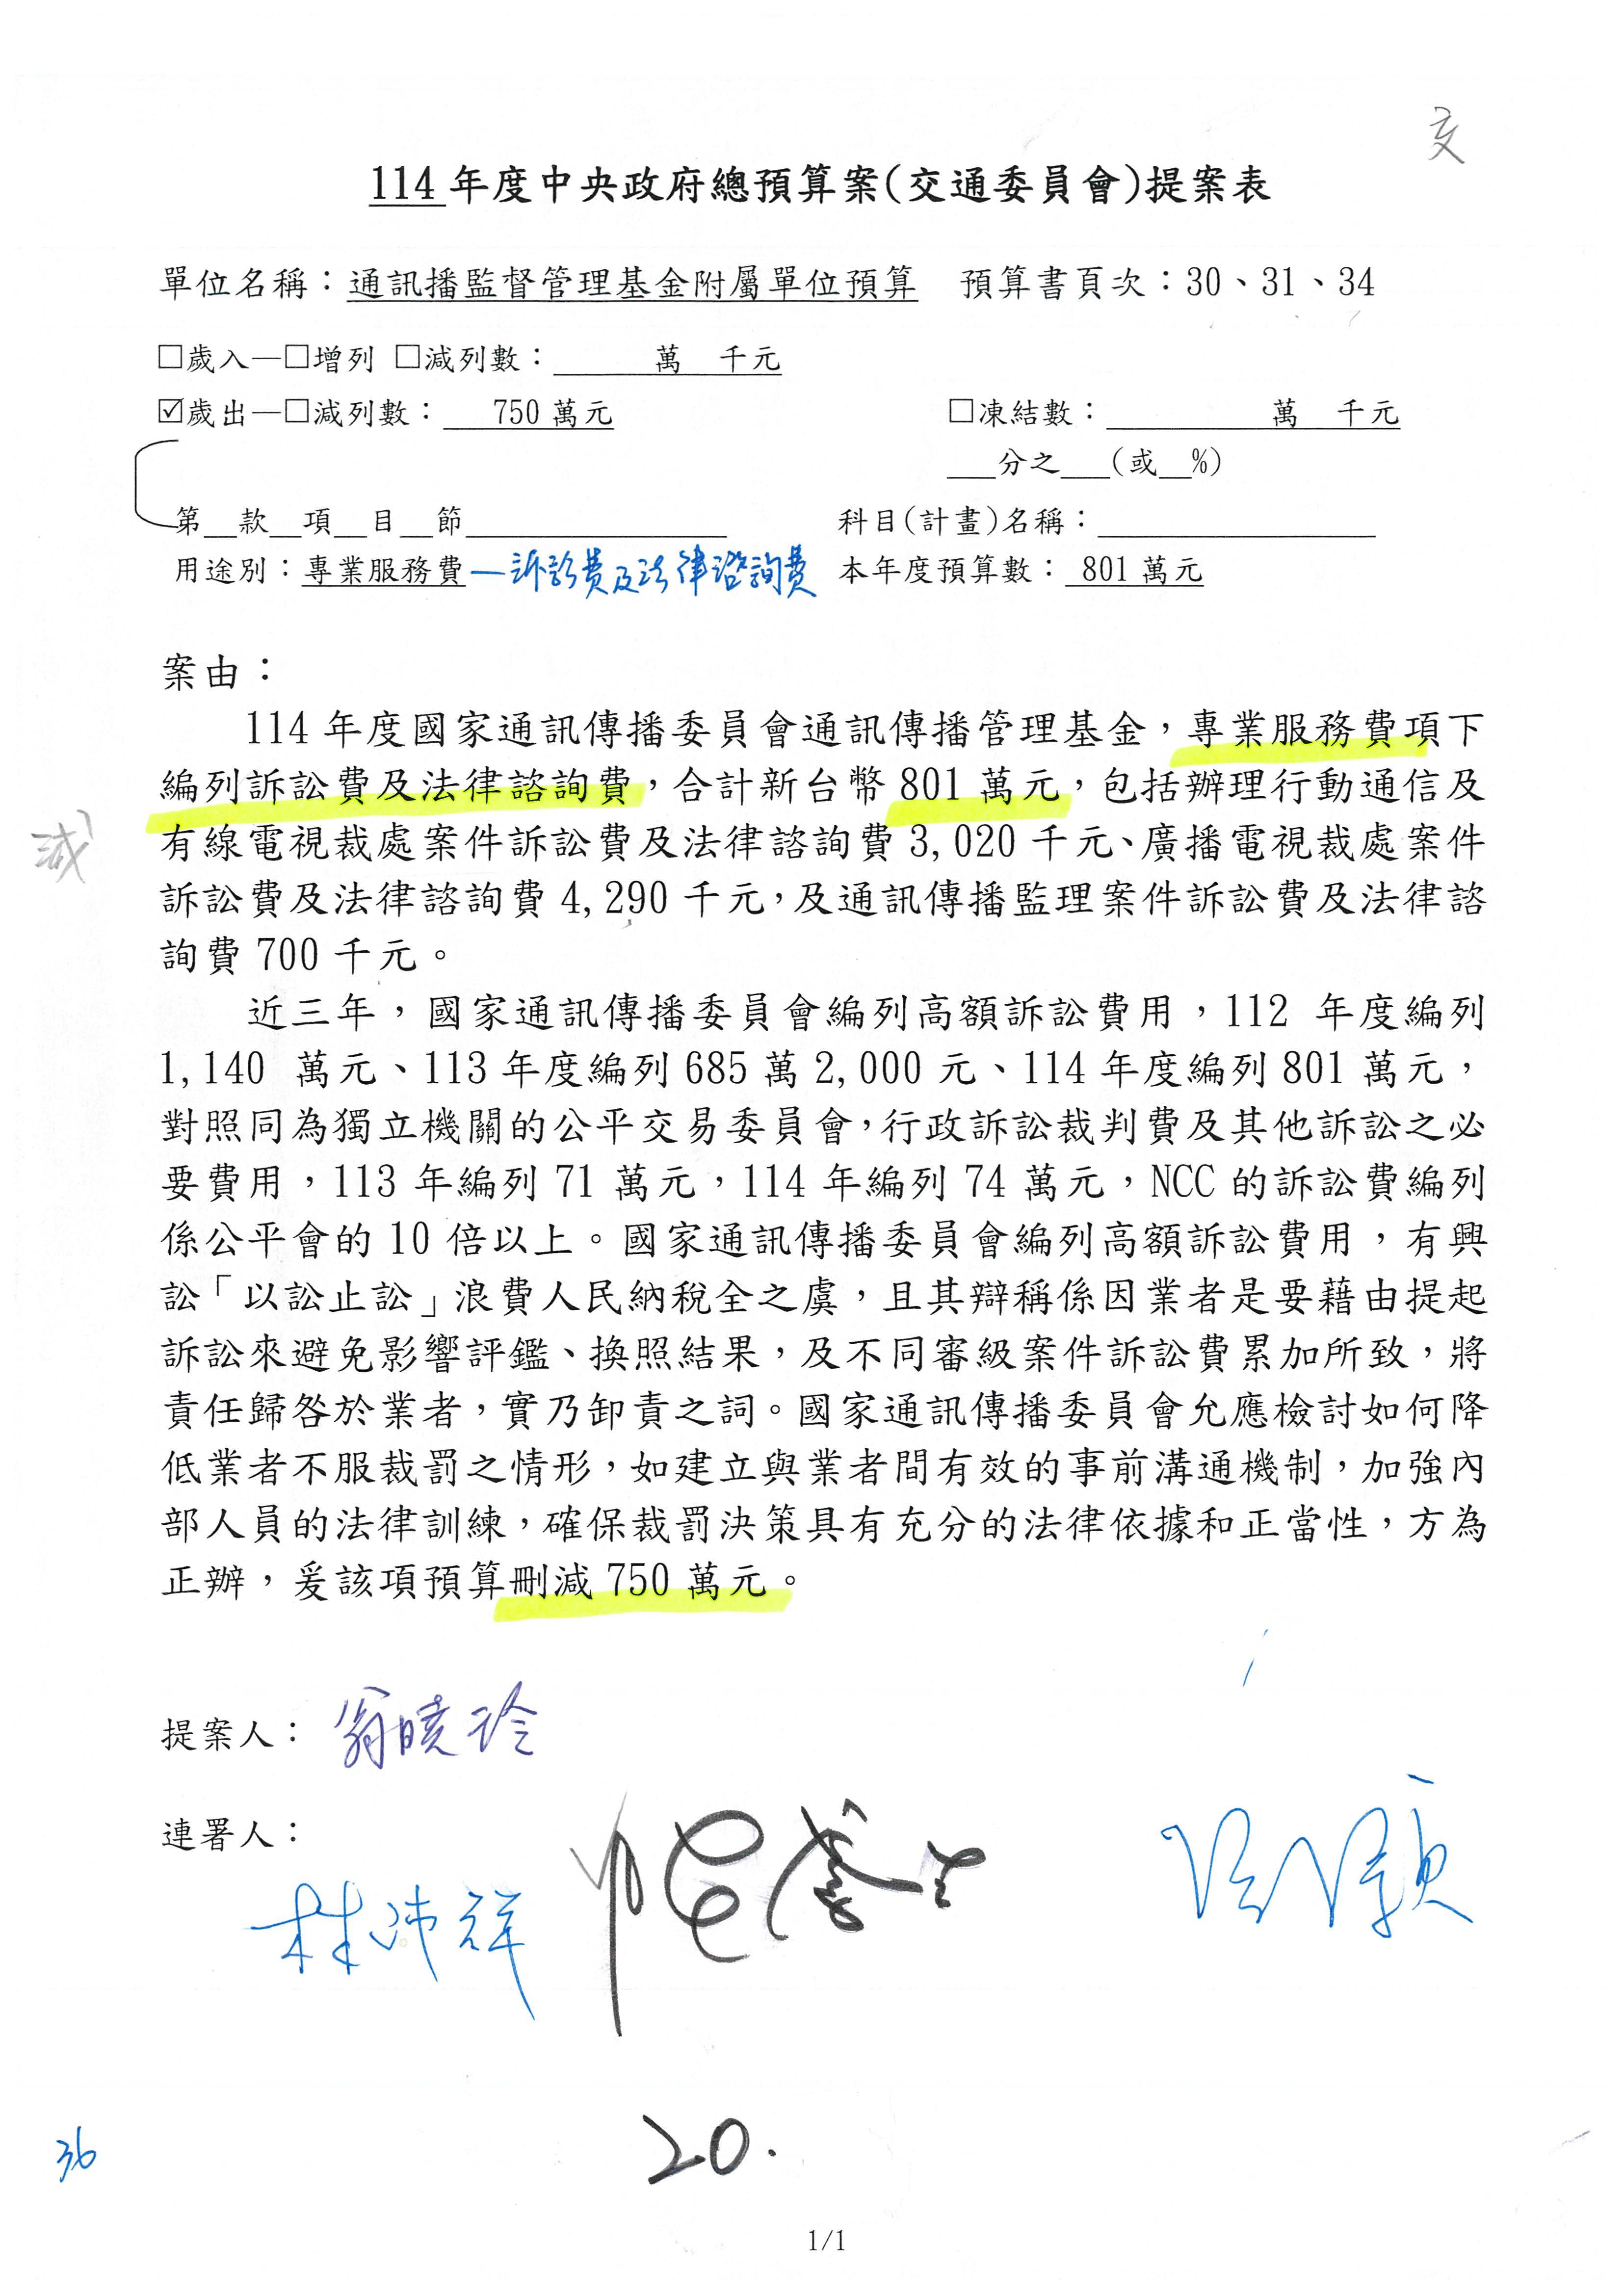 交
114 年度中央政府總預算案(交通委員會)提案表
單位名稱：通訊播監督管理基金附屬單位預算 預算書頁次：30、31、34
□歲入—□增列 □減列數：＿＿＿萬 千元
☑歲出—□減列數： 750 萬元 □凍結數：＿＿＿萬 千元
＿＿分之＿＿(或＿%)
第＿款＿項＿目＿節＿＿＿＿ 科目(計畫)名稱：＿＿＿＿
用途別：專業服務費—訴訟費及法律諮詢費 本年度預算數： 801 萬元
案由：
114 年度國家通訊傳播委員會通訊傳播管理基金，專業服務費項下
編列訴訟費及法律諮詢費，合計新台幣 801 萬元，包括辦理行動通信及
減
有線電視裁處案件訴訟費及法律諮詢費 3,020 千元、廣播電視裁處案件
訴訟費及法律諮詢費 4,290 千元，及通訊傳播監理案件訴訟費及法律諮
詢費 700 千元。
近三年，國家通訊傳播委員會編列高額訴訟費用，112 年度編列
1,140 萬元、113 年度編列 685 萬 2,000 元、114 年度編列 801 萬元，
對照同為獨立機關的公平交易委員會，行政訴訟裁判費及其他訴訟之必
要費用，113 年編列 71 萬元，114 年編列 74 萬元，NCC 的訴訟費編列
係公平會的 10 倍以上。國家通訊傳播委員會編列高額訴訟費用，有興
訟「以訟止訟」浪費人民納稅全之虞，且其辯稱係因業者是要藉由提起
訴訟來避免影響評鑑、換照結果，及不同審級案件訴訟費累加所致，將
責任歸咎於業者，實乃卸責之詞。國家通訊傳播委員會允應檢討如何降
低業者不服裁罰之情形，如建立與業者間有效的事前溝通機制，加強內
部人員的法律訓練，確保裁罰決策具有充分的法律依據和正當性，方為
正辦，爰該項預算刪減 750 萬元。
提案人： 翁曉玲
連署人：
林沛祥
20.
36
1/1